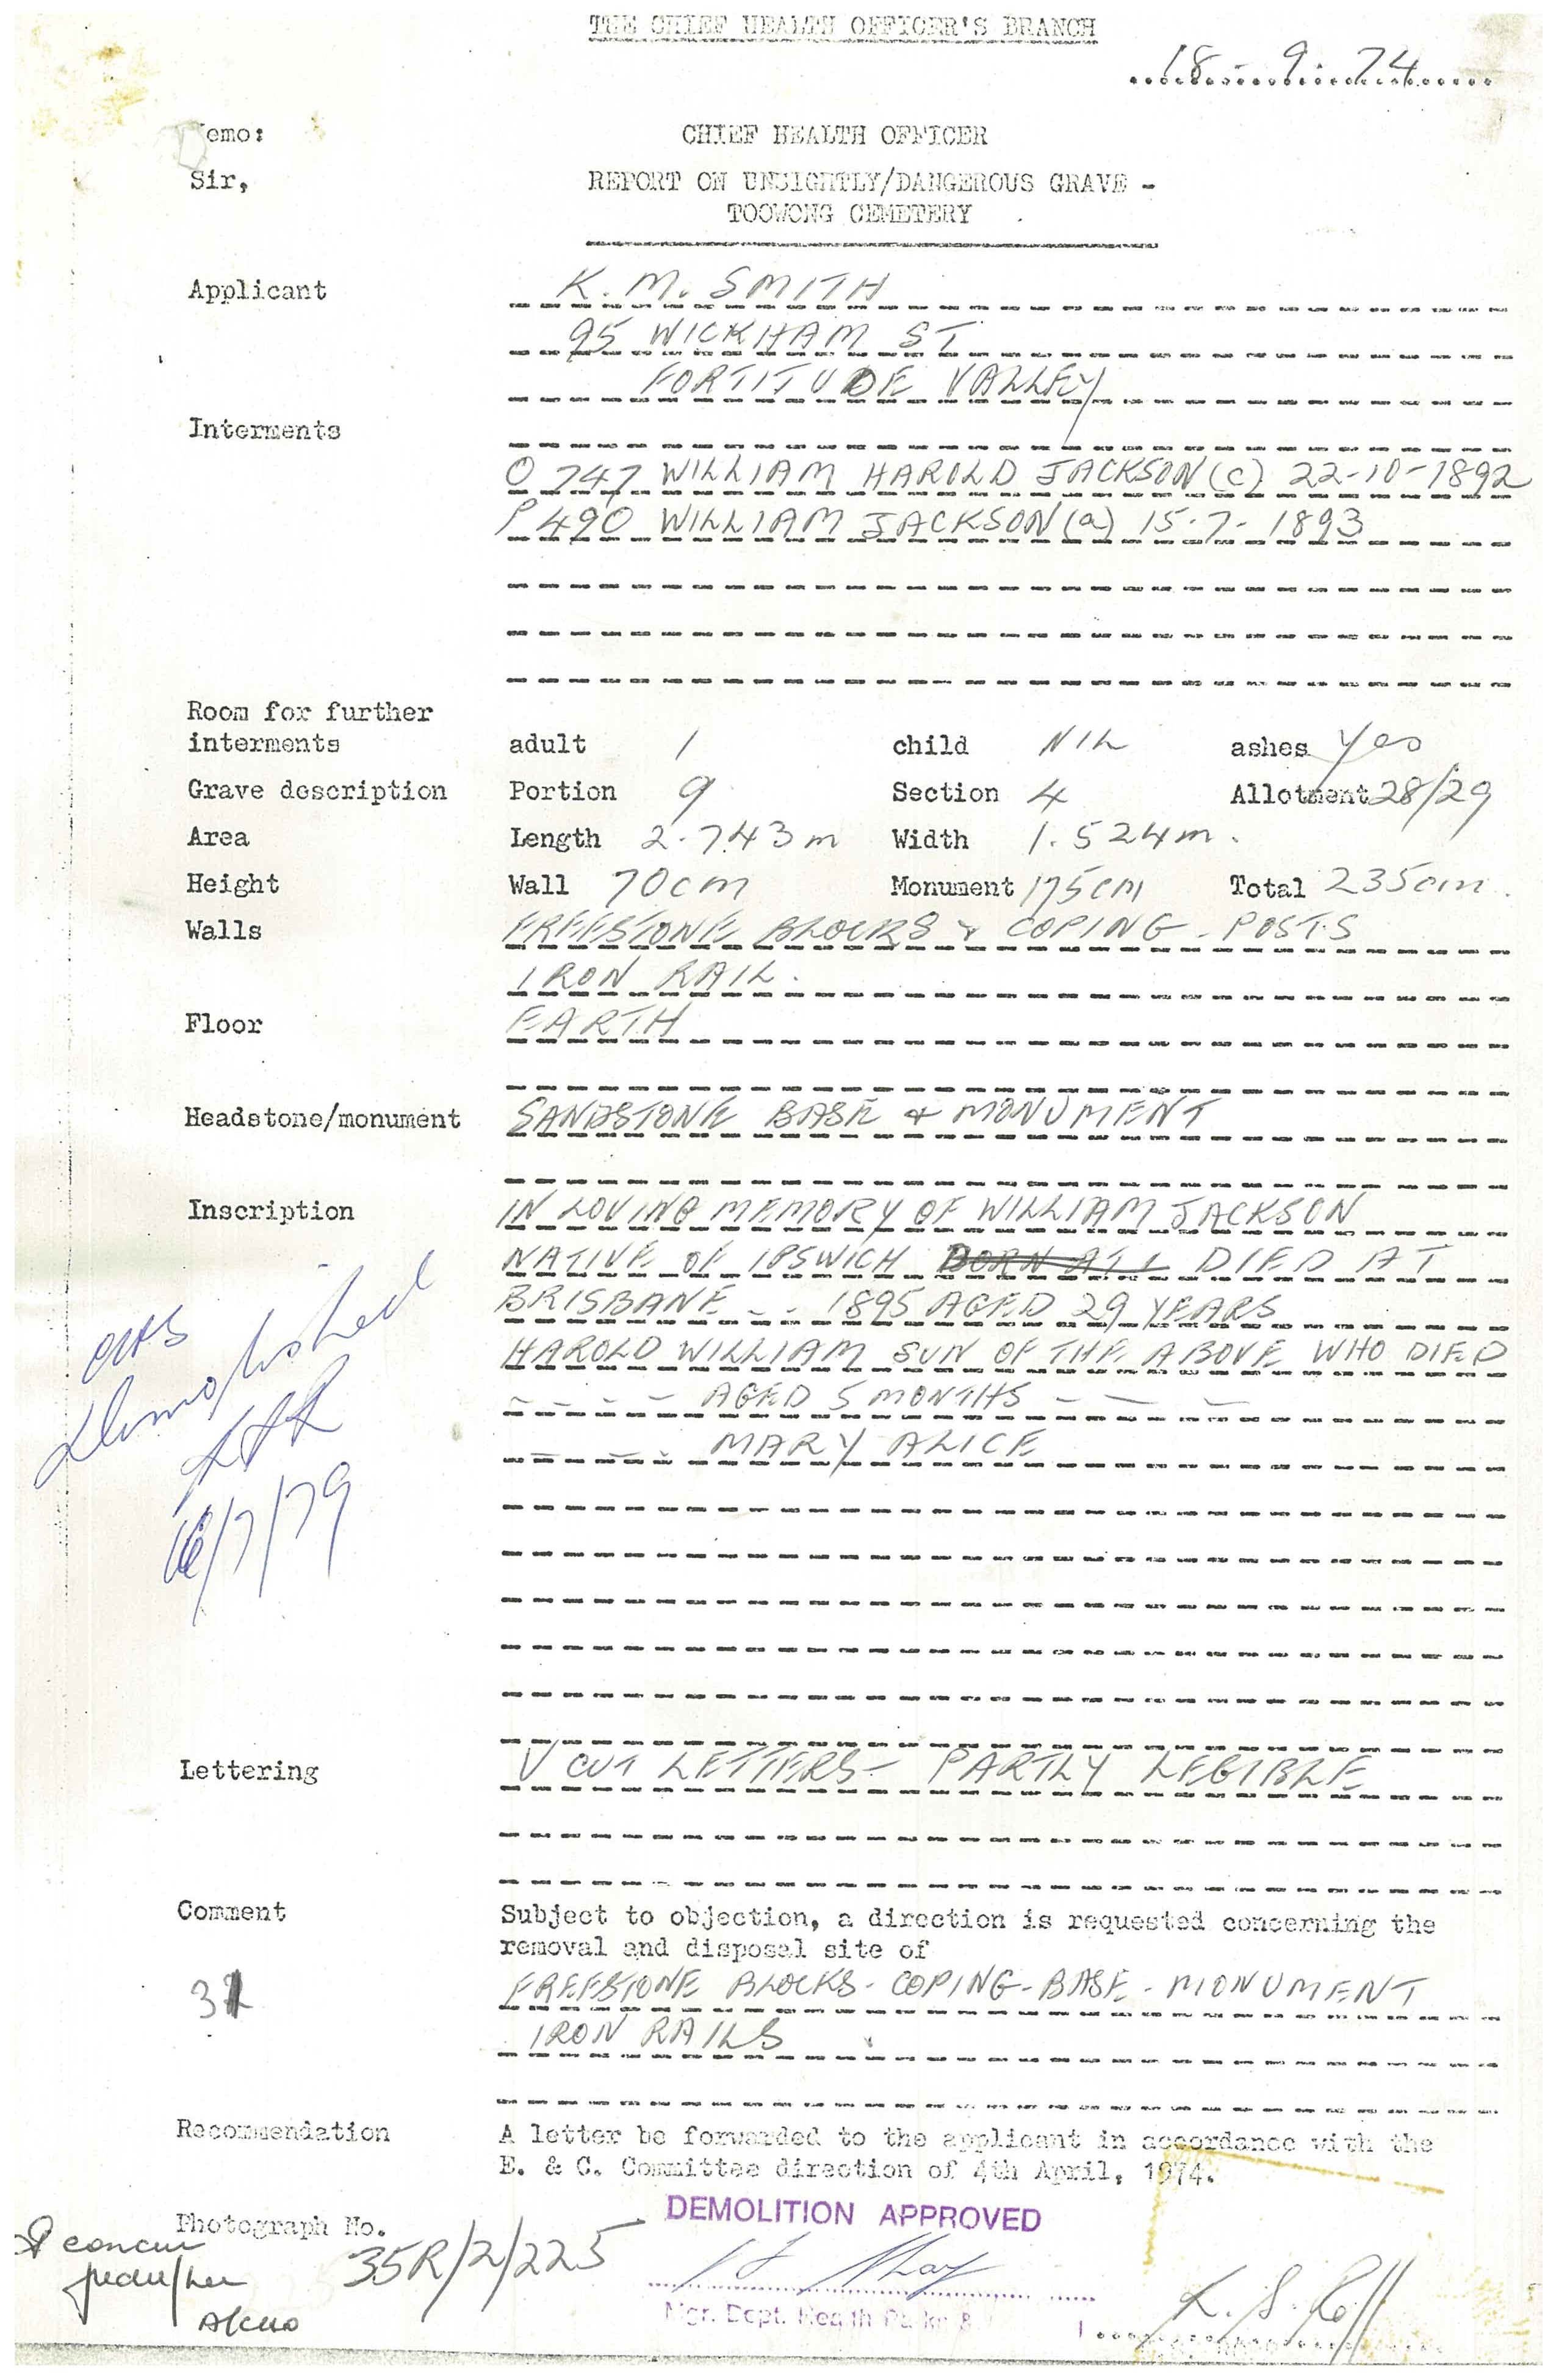 THE CHIEF HEALTH OFFICER'S BRANCH
18 - 9 - 74
emo:
CHIEF HEALTH OFFICER
Sir,
REPORT ON UNSIGHTLY/DANGEROUS GRAVE -
TOOWONG CEMETERY
Applicant K. M. SMITH
95 WICKHAM ST
FORTITUDE VALLEY
Interments
O 747 WILLIAM HAROLD JACKSON (c) 22-10-1892
P 490 WILLIAM JACKSON (a) 15-7-1893
Room for further
interments adult 1 child NIL ashes yes
Grave description Portion 9 Section 4 Allotment 28/29
Area Length 2.743m Width 1.524m.
Height Wall 70cm Monument 175cm Total 235cm.
Walls FREESTONE BLOCKS & COPING - POSTS
IRON RAIL.
Floor EARTH
Headstone/monument SANDSTONE BASE & MONUMENT
Inscription IN LOVING MEMORY OF WILLIAM JACKSON
NATIVE OF IPSWICH BORN AT DIED AT
BRISBANE - - 1895 AGED 29 YEARS
HAROLD WILLIAM SUN OF THE ABOVE WHO DIED
- - - - AGED 5 MONTHS - - -
- - - - MARY ALICE
Demolished
16/7/79
Lettering V CUT LETTERS - PARTLY LEGIBLE
Comment Subject to objection, a direction is requested concerning the
removal and disposal site of
FREESTONE BLOCKS - COPING - BASE - MONUMENT
IRON RAILS
Recommendation A letter be forwarded to the applicant in accordance with the
E. & C. Committee direction of 4th April, 1974.
DEMOLITION APPROVED
Photograph No. 35R/2/225
I concur
Mgr. Dept. Health Parks &